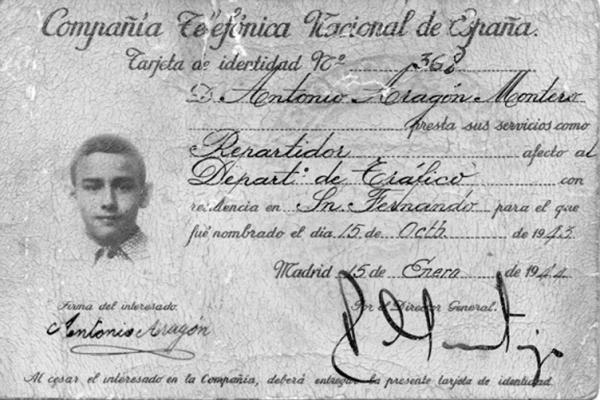 Compañía Telefónica Nacional de España.
Tarjeta de identidad Nº 368
D. Antonio Aragón Montero
presta sus servicios como
Repartidor afecto al
Depart.º de Tráfico con
residencia en Sn. Fernando para el que
fué nombrado el día 15 de Octb. de 1943
Madrid 15 de Enero de 1944
Firma del interesado.
Por el Director General.
Antonio Aragón
Al cesar el interesado en la Compañía, deberá entregar la presente tarjeta de identidad.